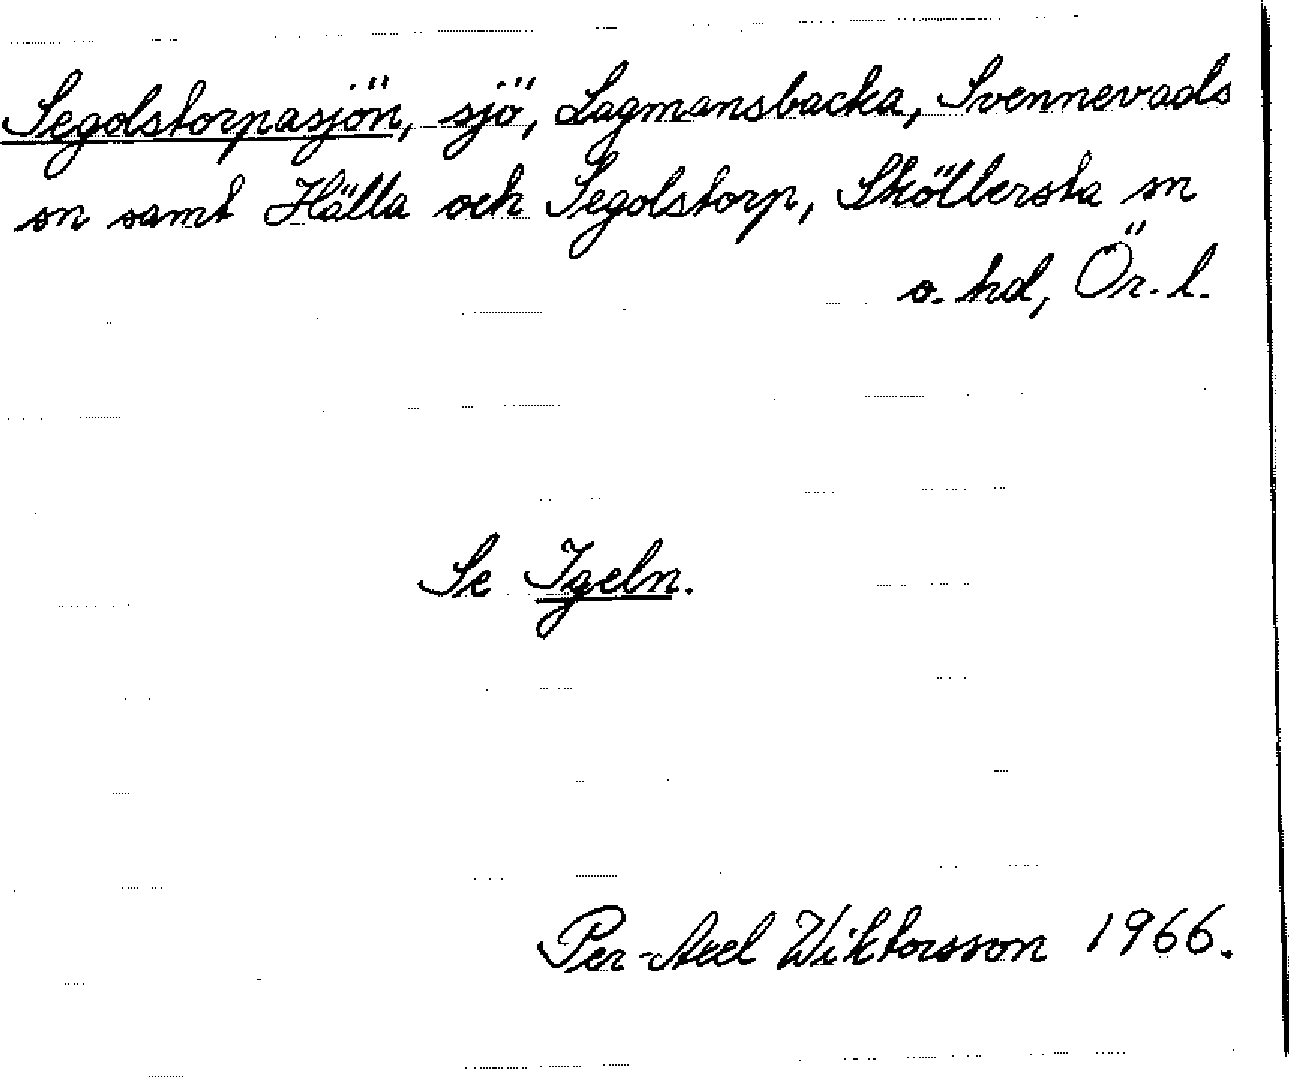 Segolstorpasjön, sjö, Lagmansbacka, Svennevads
sn samt Hälla och Segolstorp, Sköllersta sn
o. hd, Ör. l.
Se Igeln.
Per-Axel Wiktorsson 1966.